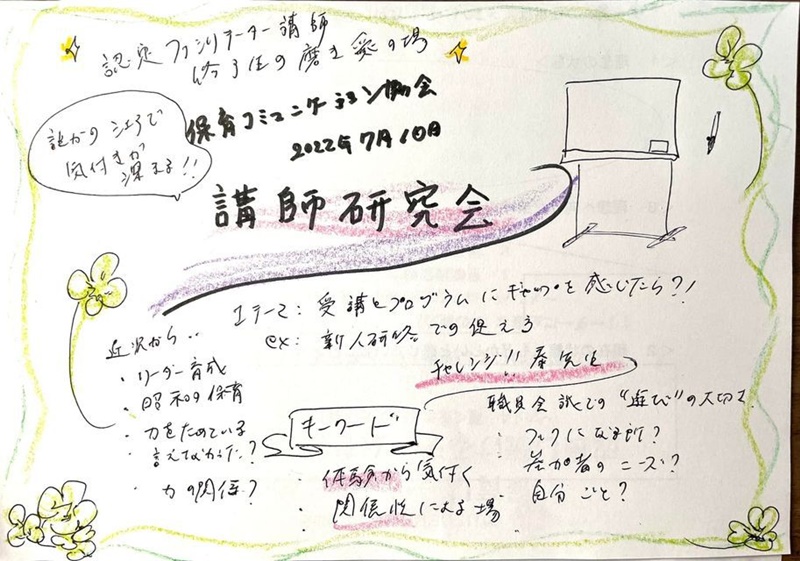 認定ファシリテーター講師
修了生の磨き愛の場
保育コミュニケーション協会
2022年7月10日
誰かのシェアで
気付きが
深まる!!
講師研究会
1テーマ: 受講とプログラムにギャップを感じたら?!
ex: 新人研修での捉え方
チャレンジ!!
近況から..
・リーダー育成
・昭和の保育
・力をためている
・言えなかった?
・力の関係?
キーワード
・体験から気付く
・関係性による場
職員会議での"遊び"の大切さ
フックになる所?
参加者のニーズ?
自分ごと?